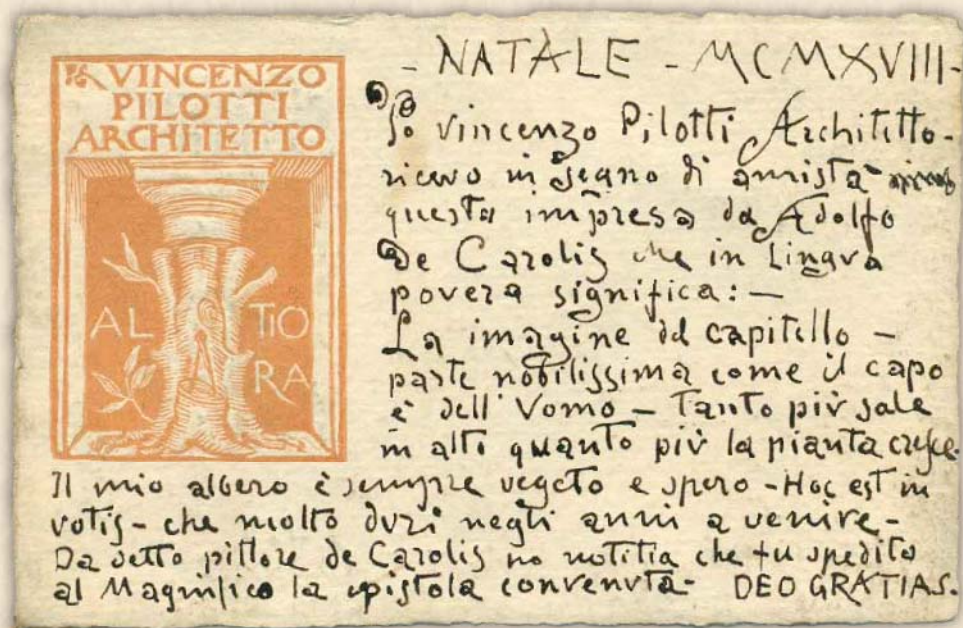 VINCENZO
PILOTTI
ARCHITETTO
AL TIO
RA
- NATALE - MCMXVIII -
Io vincenzo Pilotti Architetto -
ricevo in segno di amistà
questa impresa da Adolfo
De Carolis che in Lingva
povera significa: -
La imagine del capitello -
parte nobilissima come il capo
è dell' Vomo - Tanto più sale
in alto quanto più la pianta cresce.
Il mio albero è sempre vegeto e spero - Hoc est in
votis - che molto duri negli anni a venire -
Da detto pittore de Carolis ho notitia che fu spedito
al Magnifico la epistola convenvta - DEO GRATIAS.